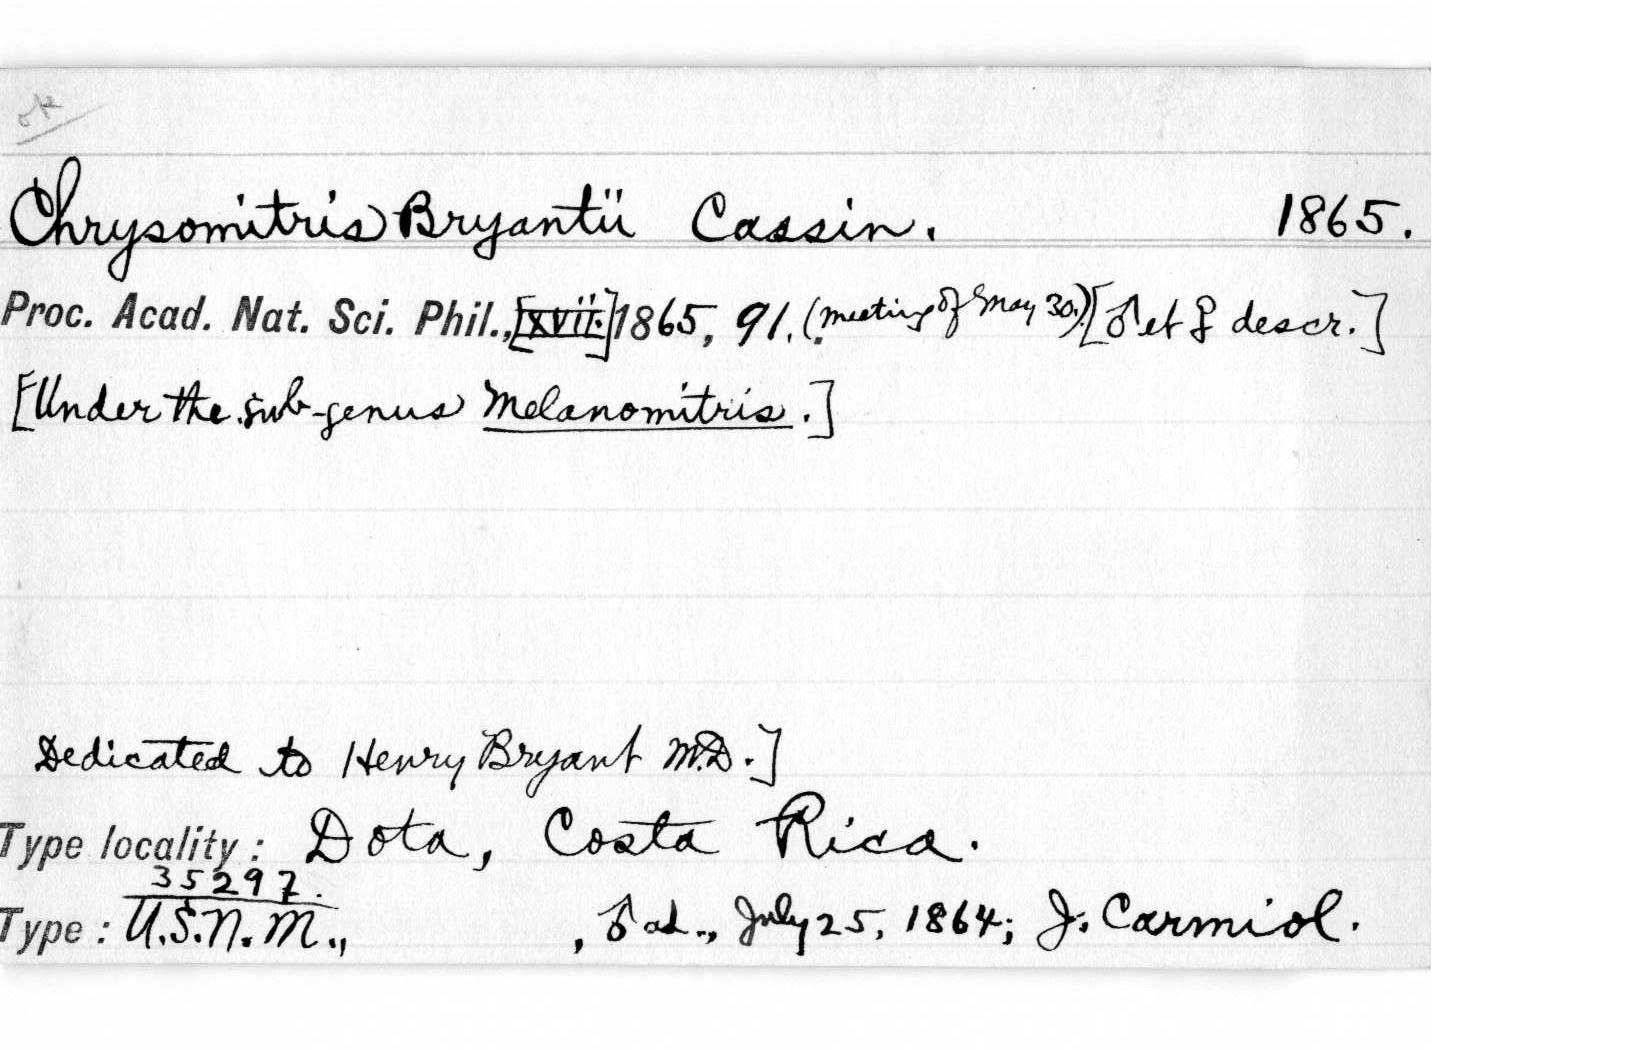 ok
Chrysomitris Bryantii Cassin. 1865.
Proc. Acad. Nat. Sci. Phil., [xvii.] 1865, 91. (meeting of May 30.) [♂ et ♀ descr.]
[Under the sub-genus Melanomitris.]
Dedicated to Henry Bryant M.D.]
Type locality: Dota, Costa Rica.
35297.
Type: U.S.N.M., , ♂ ad., July 25, 1864; J. Carmiol.